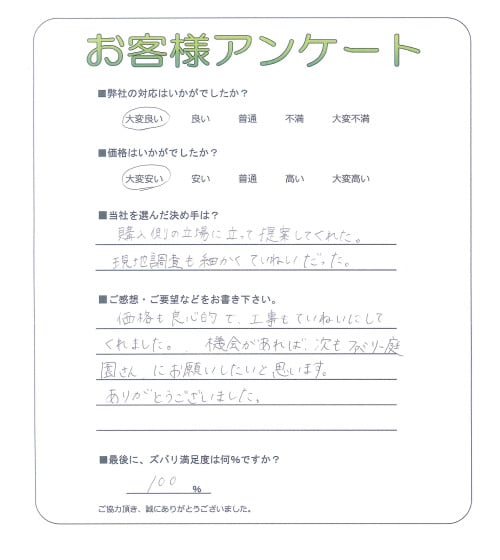 お客様アンケート
■弊社の対応はいかがでしたか？
大変良い 良い 普通 不満 大変不満
■価格はいかがでしたか？
大変安い 安い 普通 高い 大変高い
■当社を選んだ決め手は？
購入側の立場に立って提案してくれた。
現地調査も細かくていねいだった。
■ご感想・ご要望などをお書き下さい。
価格も良心的で、工事もていねいにして
くれました。 機会があれば、次もファミリー庭
園さんにお願いしたいと思います。
ありがとうございました。
■最後に、ズバリ満足度は何%ですか？
100 %
ご協力頂き、誠にありがとうございました。